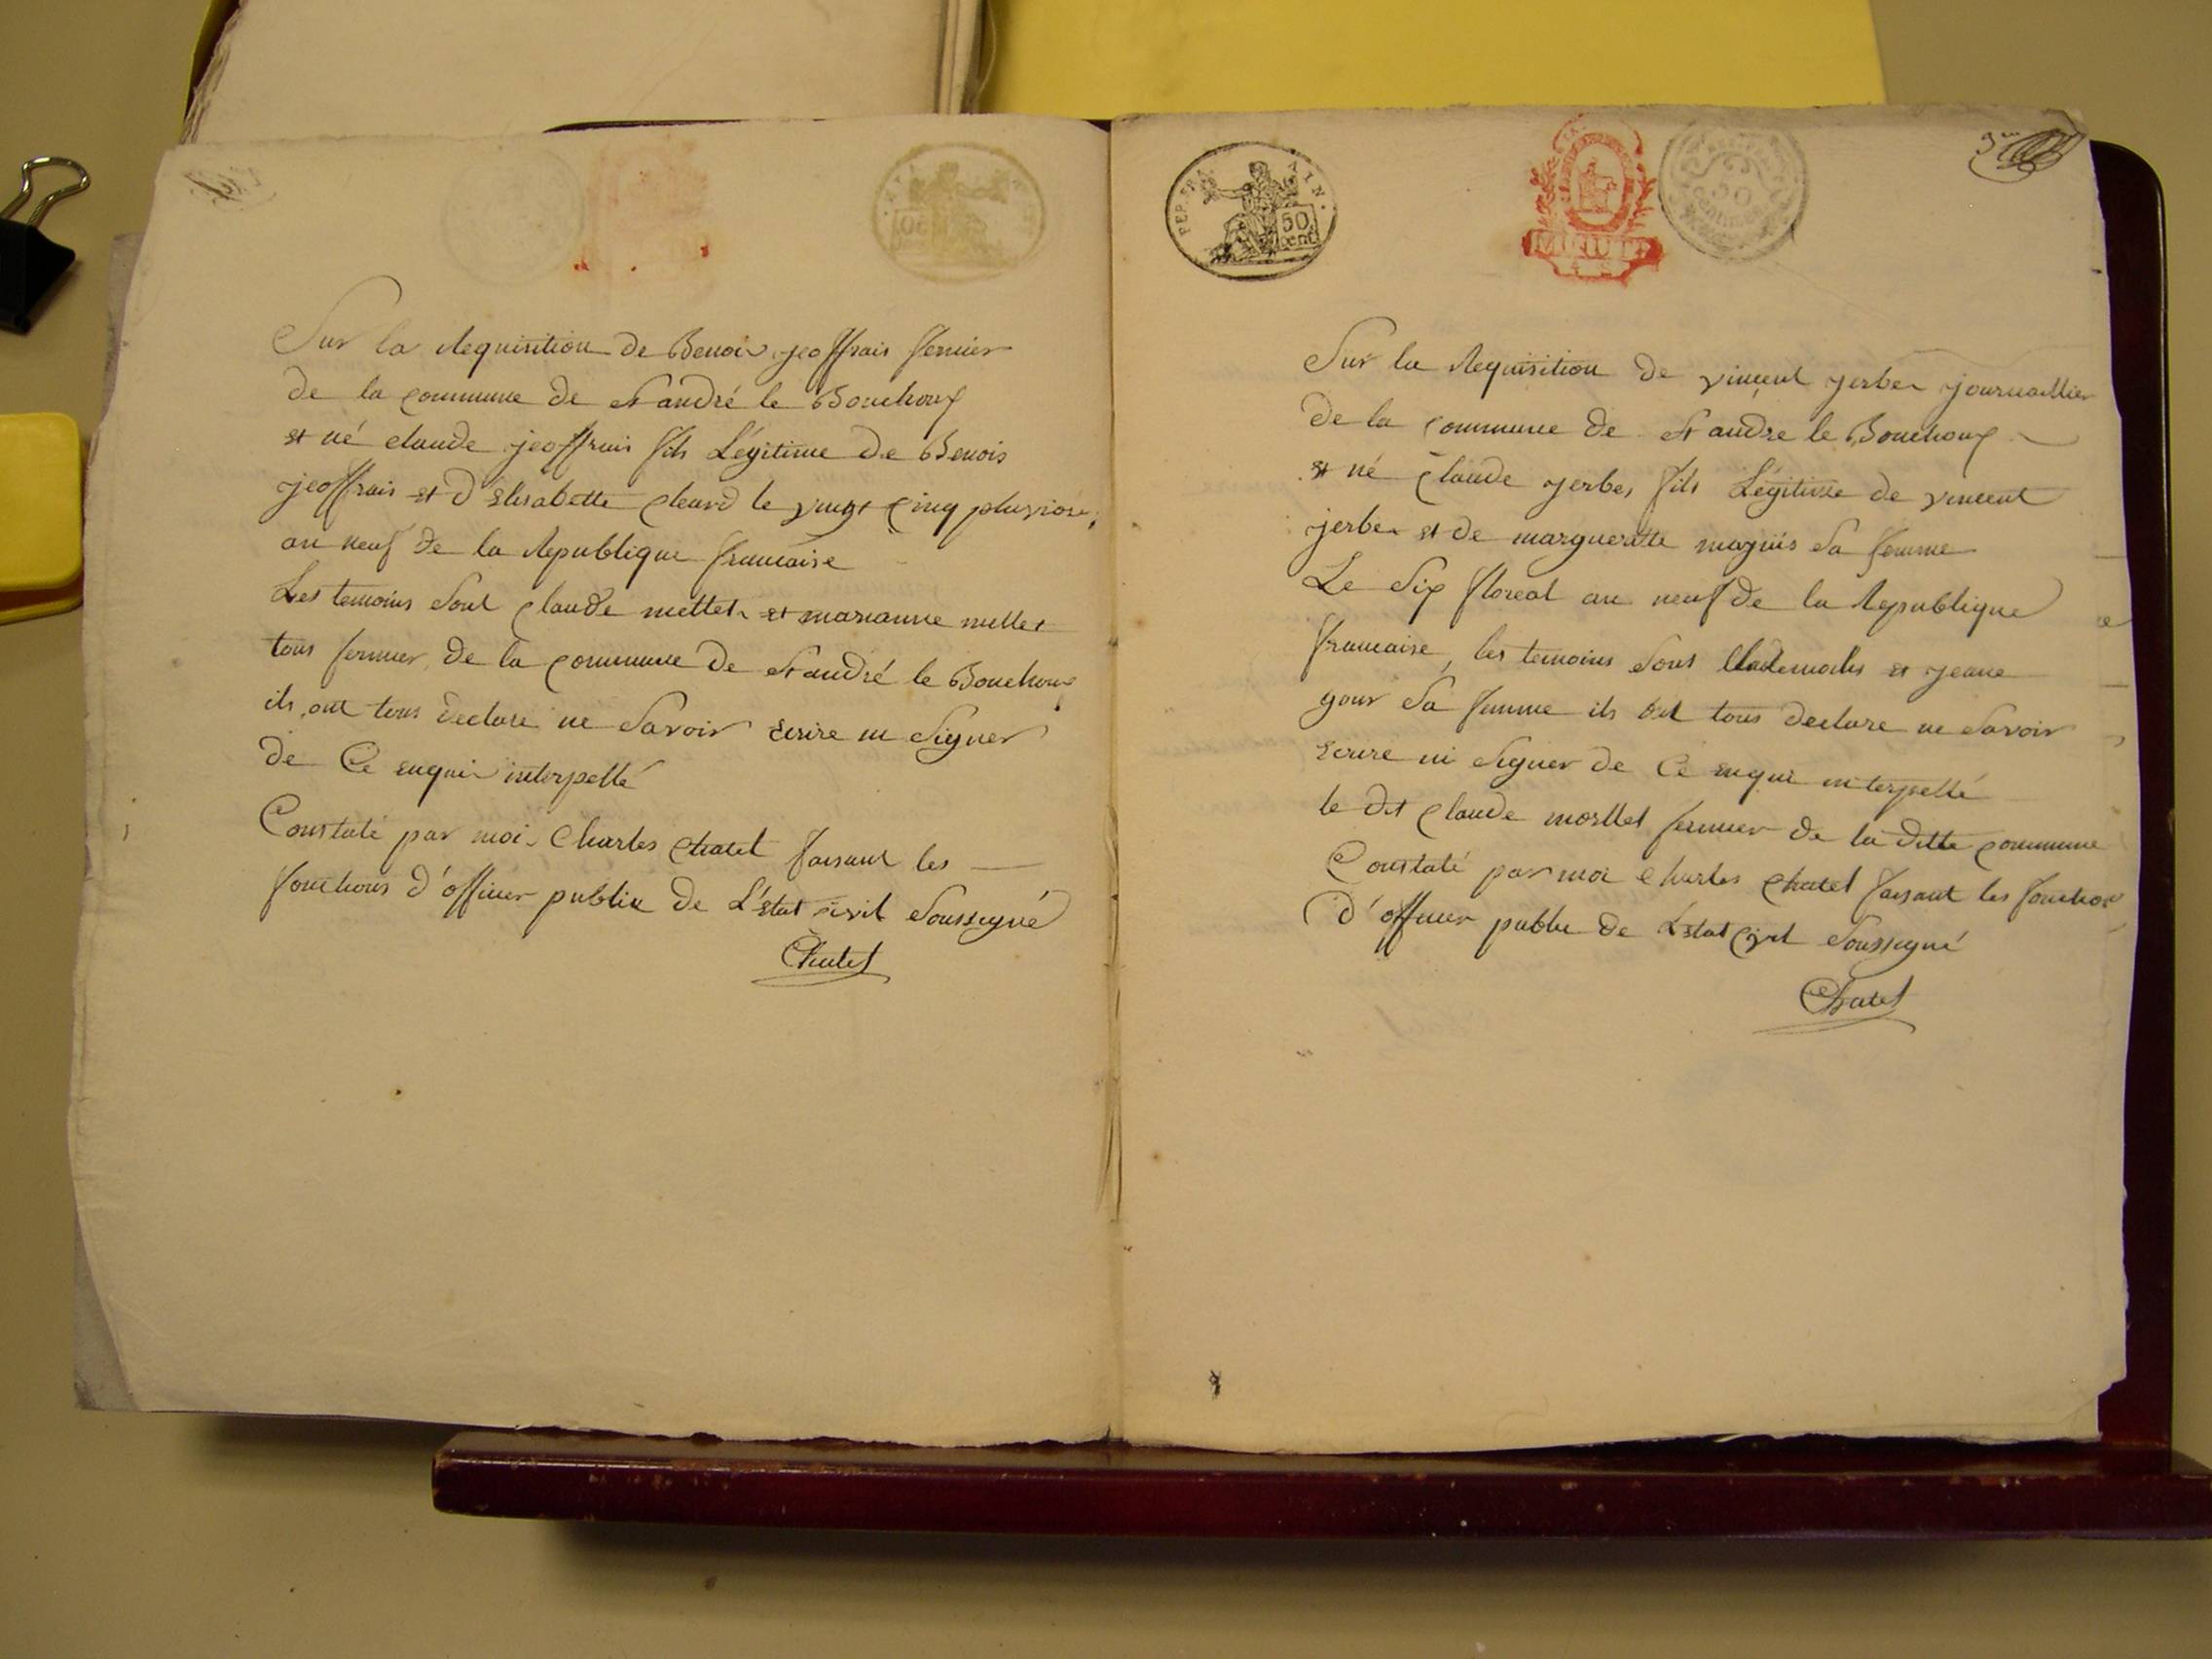 Sur la Requisition de Benois jeoffrais fermier
de la commune de St andré le Bouchoux
est né claude jeoffrais fils Légitime de Benois
jeoffrais et d'Elisabette cleard le vingt cinq pluviose
an neuf de la Republique francaise
Les temoins sont claude mettet et marianne mettet
tous fermier de la commune de St andré le Bouchoux
ils ont tous declare ne savoir ecrire ni signer
de Ce enquis interpellé
Constaté par moi Charles Chatel faisant les
fonctions d'officier public de L'état civil soussigné
Chatel
PEP. FR. AIN.
50
cent
50
centimes
Sur la Requisition de vincent jerber journaillier
de la commune de St andre le Bouchoux
est né claude jerber fils Légitime de vincent
jerber et de margueritte sa femme
Le six floreal an neuf de la Republique
francaise, les temoins sont et jeane
gour sa femme ils ont tous declare ne savoir
ecrire ni signer de Ce enquis interpellé
le dit claude mortlet fermier de la ditte commune
Constaté par moi Charles chatel faisant les fonction
d'officier public de L'état civil soussigné
Chatel